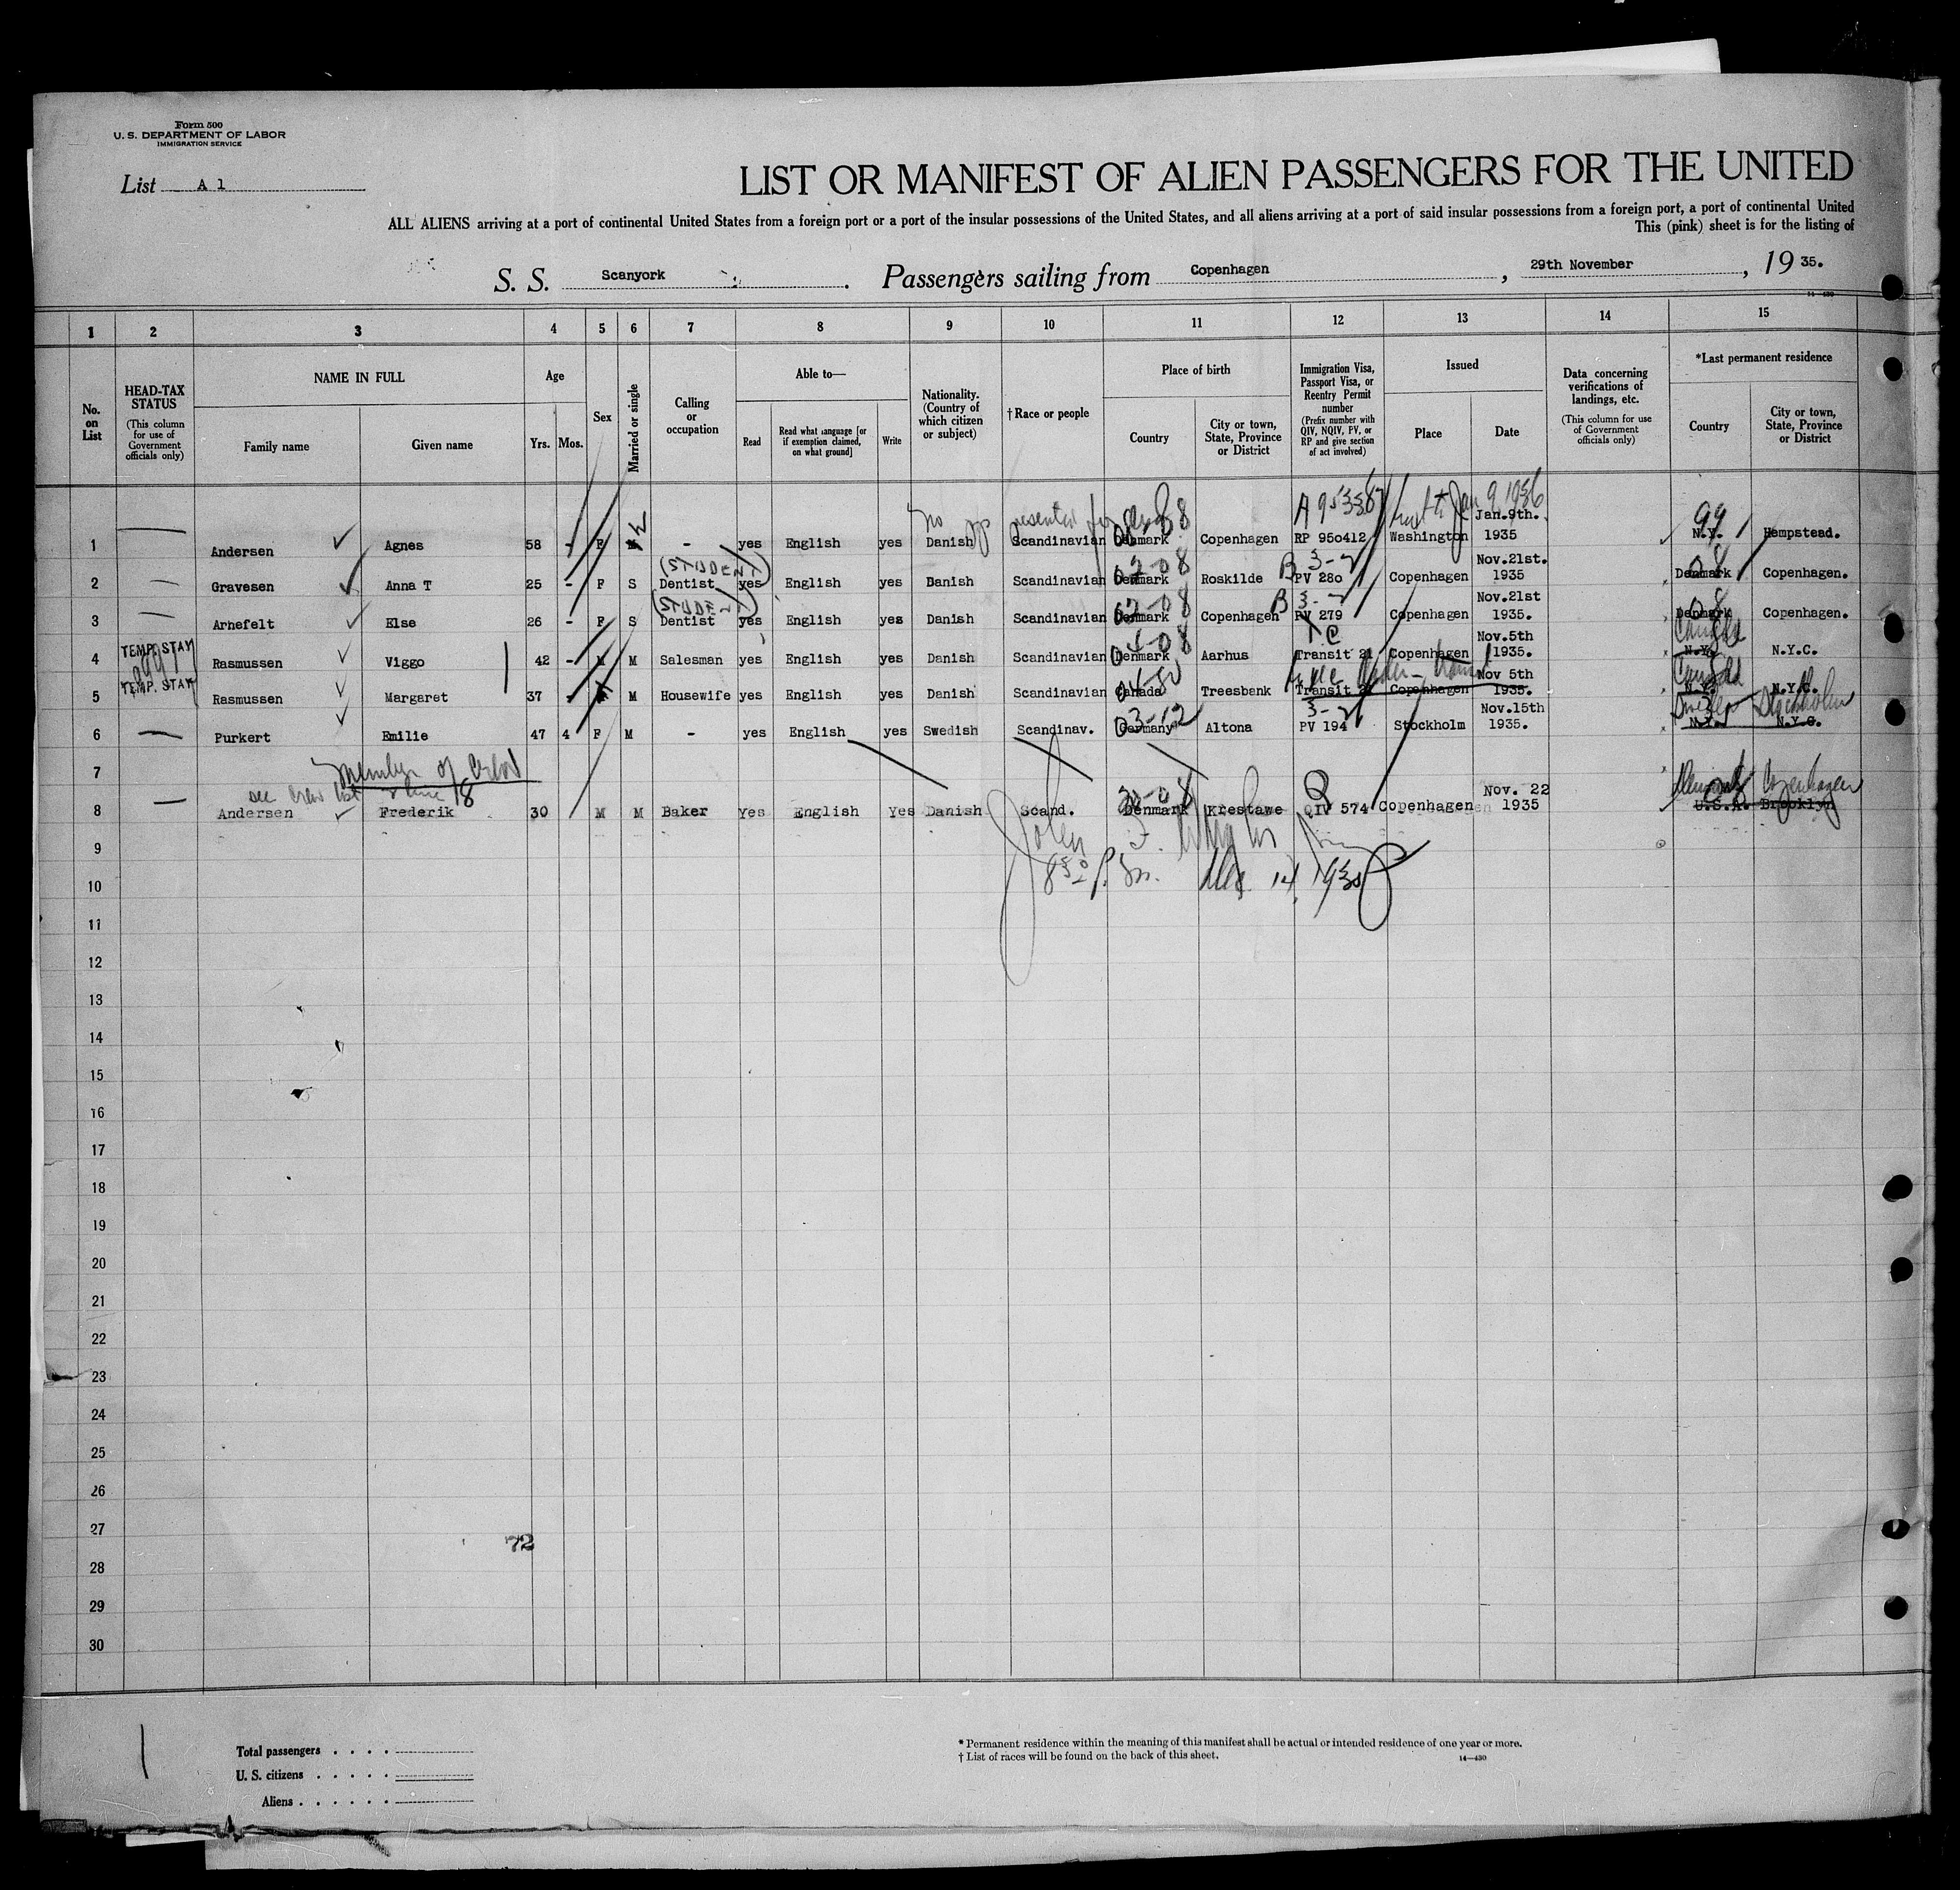 Form 500
U. S. DEPARTMENT OF LABOR
IMMIGRATION SERVICE
List A 1
LIST OR MANIFEST OF ALIEN PASSENGERS FOR THE UNITED
ALL ALIENS arriving at a port of continental United States from a foreign port or a port of the insular possessions of the United States, and all aliens arriving at a port of said insular possessions from a foreign port, a port of continental United
This (pink) sheet is for the listing of
S. S. Scanyork . Passengers sailing from Copenhagen , 29th November , 19 35.
14—430
1 2 3 4 5 6 7 8 9 10 11 12 13 14 15
No. on List
HEAD-TAX STATUS (This column for use of Government officials only)
NAME IN FULL
Family name Given name
Age
Yrs. Mos.
Sex
Married or single
Calling or occupation
Able to—
Read Read what language [or if exemption claimed, on what ground] Write
Nationality. (Country of which citizen or subject)
†Race or people
Place of birth
Country City or town, State, Province or District
Immigration Visa, Passport Visa, or Reentry Permit number (Prefix number with QIV, NQIV, PV, or RP and give section of act involved)
Issued
Place Date
Data concerning verifications of landings, etc. (This column for use of Government officials only)
*Last permanent residence
Country City or town, State, Province or District
No Jan 9 1936
1 Andersen Agnes 58 - F M - yes English yes Danish Scandinavian Denmark Copenhagen RP 950412 Washington Jan.9th. 1935 99 N.Y. Hempstead.
2 Gravesen Anna T 25 - F S (STUDENT) Dentist yes English yes Danish Scandinavian Denmark 02-08 Roskilde B 3-2 PV 280 Copenhagen Nov.21st. 1935 Denmark 08 Copenhagen.
3 Arnefelt Else 26 - F S (STUDENT) Dentist yes English yes Danish Scandinavian Denmark 02-08 Copenhagen B 3-2 PV 279 Copenhagen Nov.21st 1935. Denmark 08 Copenhagen.
4 TEMP. STAY Rasmussen Viggo 42 - M M Salesman yes English yes Danish Scandinavian Denmark Aarhus Transit 21 Copenhagen Nov.5th 1935. Canada N.Y. N.Y.C.
5 TEMP. STAY Rasmussen Margaret 37 - M Housewife yes English yes Danish Scandinavian Canada Treesbenk Transit Copenhagen Nov 5th 1935. Canada N.Y. N.Y.C.
6 Purkert Emilie 47 4 F M - yes English yes Swedish Scandinav. Germany 03-12 Altona 3-2 PV 194 Stockholm Nov.15th 1935. Sweden Stockholm N.Y. N.Y.C.
7 Member of Crew
see Crew list line 18
8 Andersen Frederik 30 M M Baker Yes English Yes Danish Scand. Denmark Krestawe Q QIV 574 Copenhagen Nov. 22 1935 Denmark Copenhagen U.S.A. Brooklyn
9
10
11
12
13
14
15
16
17
18
19
20
21
22
23
24
25
26
27
72
28
29
30
Total passengers . . . .
U. S. citizens . . . . .
Aliens . . . . . .
* Permanent residence within the meaning of this manifest shall be actual or intended residence of one year or more.
† List of races will be found on the back of this sheet.
14—430